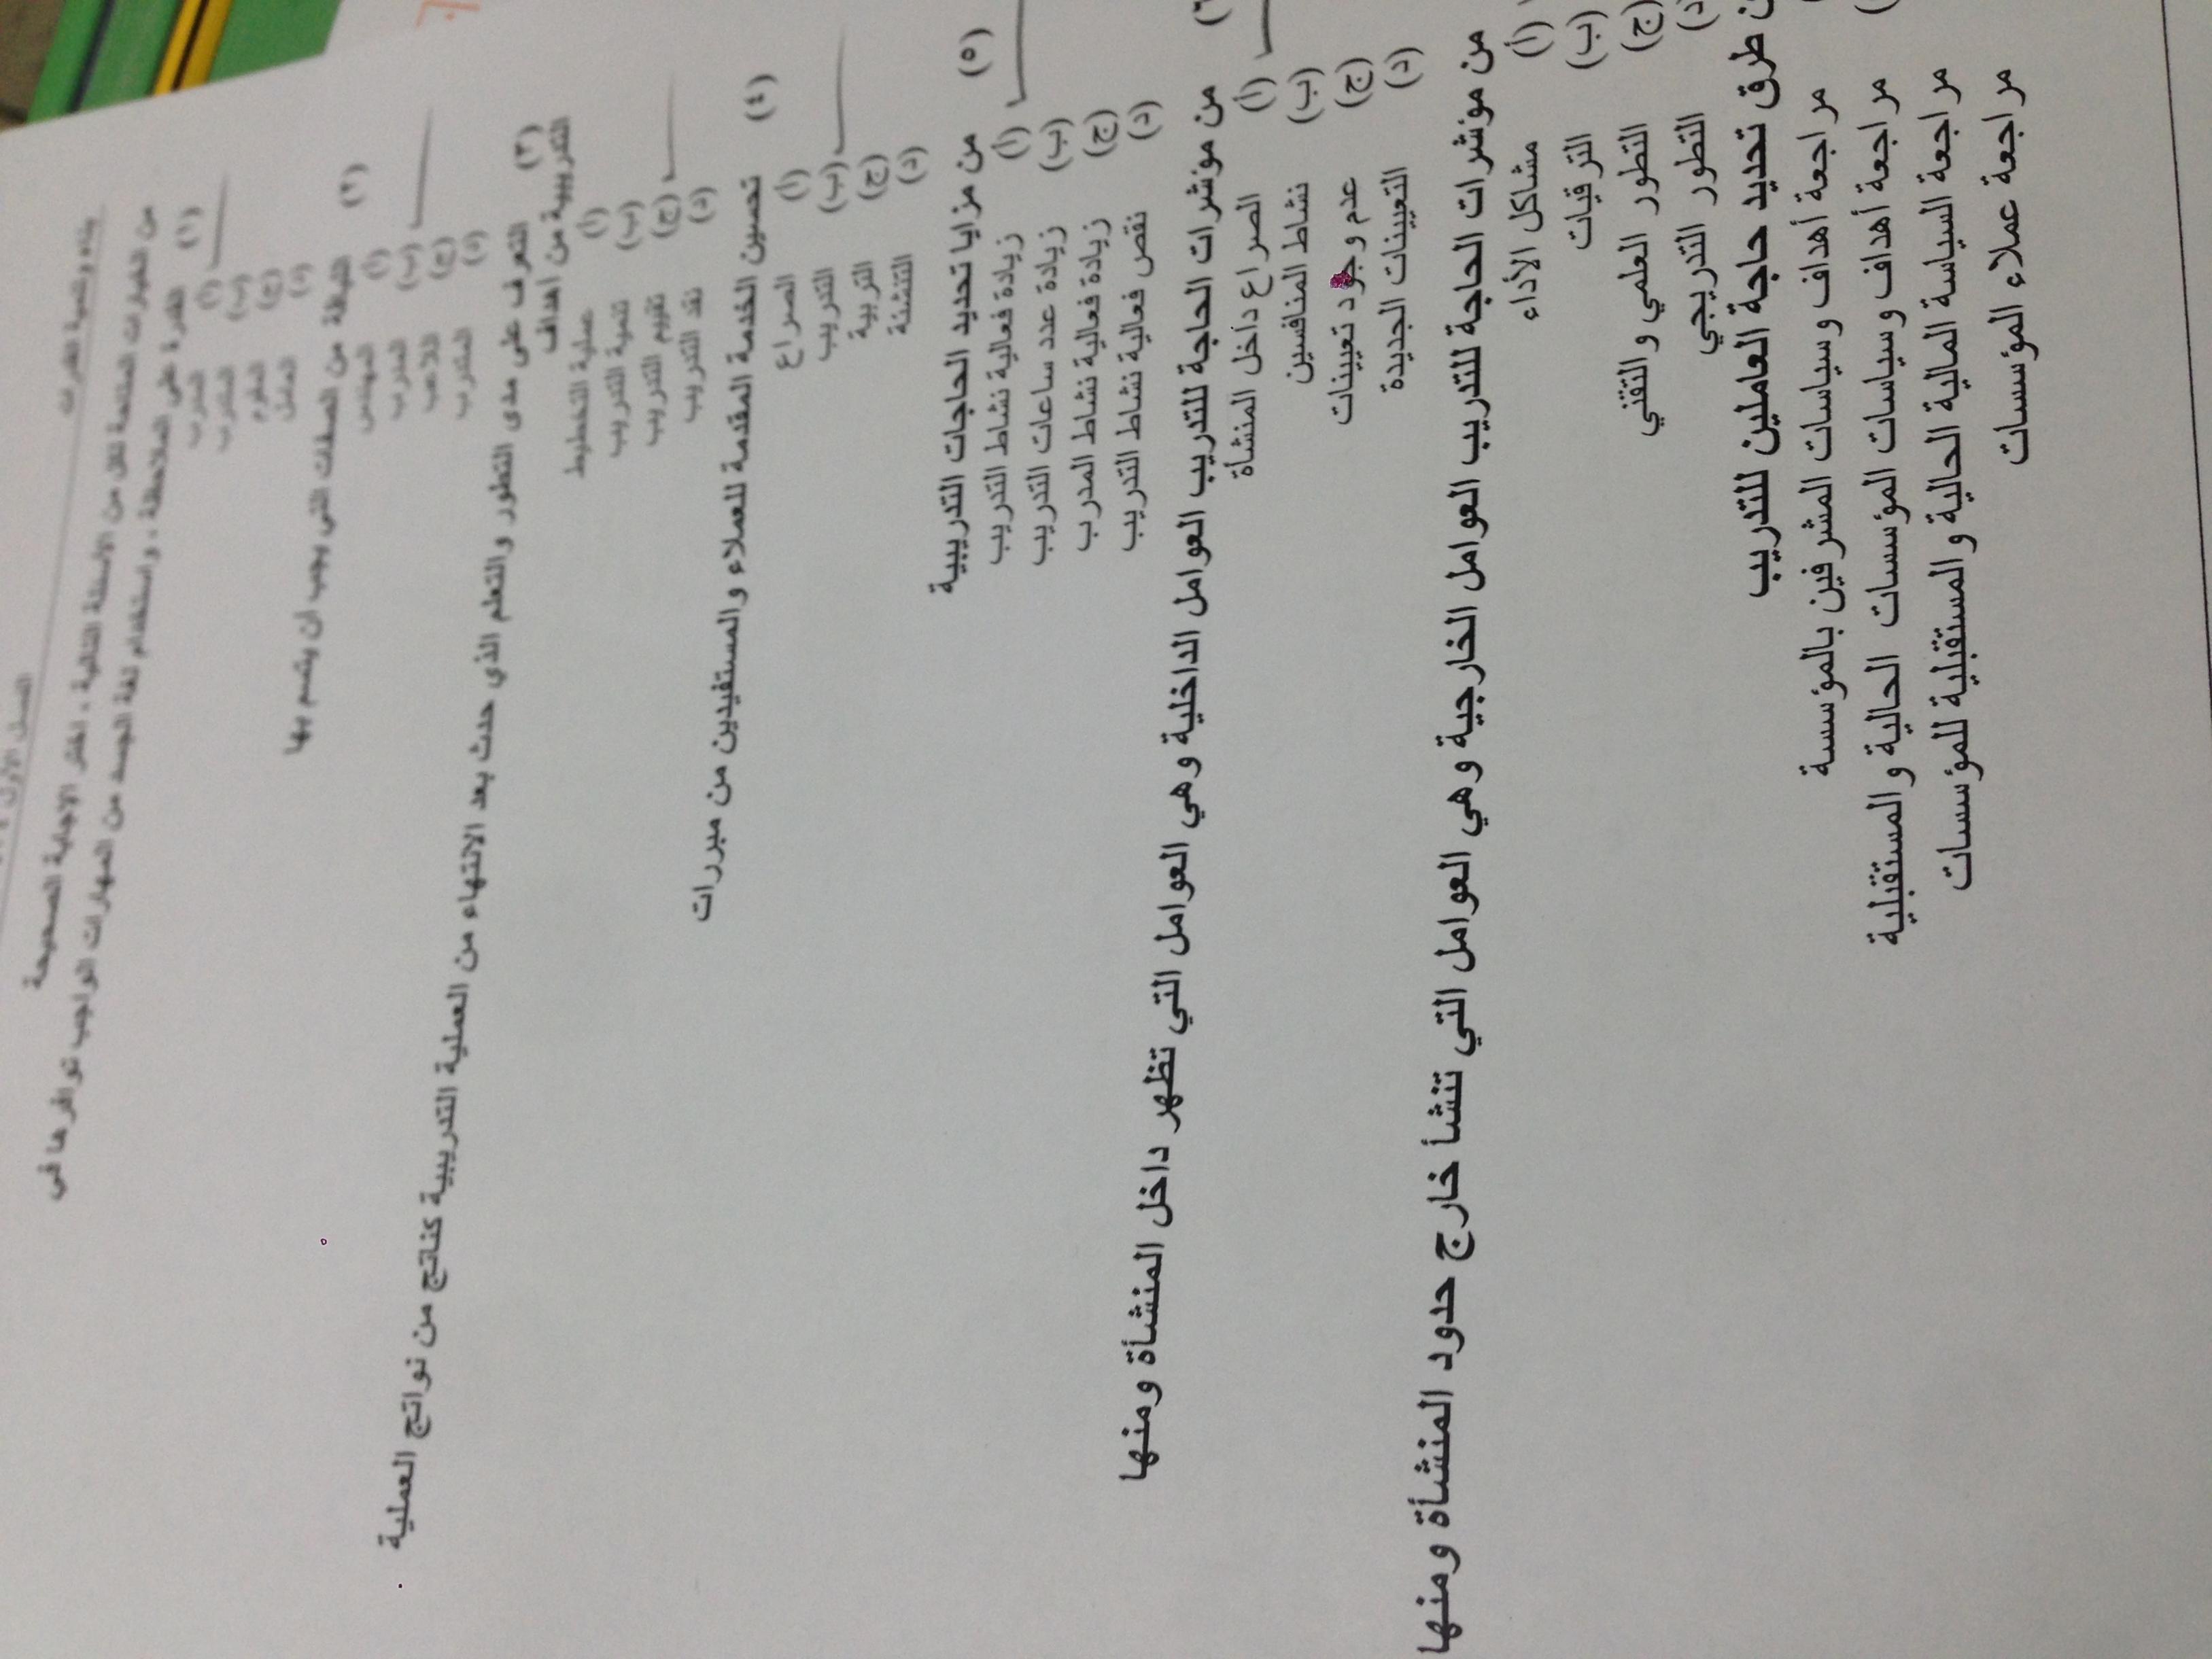 بناء وتنمية القدرات
من الخيارات المتاحة لكل من الأسئلة التالية ، اختر الإجابة الصحيحة
(١) القدرة على الملاحظة ، واستخدام لغة الجسد من المهارات الواجب توافرها في
(أ) المدرب
(ب) المتدرب
(ج) المقوم
(د) العامل
(٢) اللباقة من الصفات التي يجب ان يتسم بها
(أ) المهندس
(ب) المدرب
(ج) اللاعب
(د) المتدرب
(٣) التعرف على مدى التطور والتعلم الذي حدث بعد الانتهاء من العملية التدريبية كناتج من نواتج العملية
التدريبية من أهداف
(أ) عملية التخطيط
(ب) تنمية التدريب
(ج) تقييم التدريب
(د) نقد التدريب
(٤) تحسين الخدمة المقدمة للعملاء والمستفيدين من مبررات
(أ) الصراع
(ب) التدريب
(ج) التربية
(د) التنشئة
(٥) من مزايا تحديد الحاجات التدريبية
(أ) زيادة فعالية نشاط التدريب
(ب) زيادة عدد ساعات التدريب
(ج) زيادة فعالية نشاط المدرب
(د) نقص فعالية نشاط التدريب
من مؤشرات الحاجة للتدريب العوامل الداخلية وهي العوامل التي تظهر داخل المنشأة ومنها
(أ) الصراع داخل المنشأة
(ب) نشاط المنافسين
(ج) عدم وجود تعيينات
(د) التعيينات الجديدة
من مؤشرات الحاجة للتدريب العوامل الخارجية وهي العوامل التي تنشأ خارج حدود المنشأة ومنها
(أ) مشاكل الأداء
(ب) الترقيات
(ج) التطور العلمي والتقني
(د) التطور التدريجي
طرق تحديد حاجة العاملين للتدريب
مراجعة أهداف وسياسات المشرفين بالمؤسسة
مراجعة أهداف وسياسات المؤسسات الحالية والمستقبلية
مراجعة السياسة المالية الحالية والمستقبلية للمؤسسات
مراجعة عملاء المؤسسات